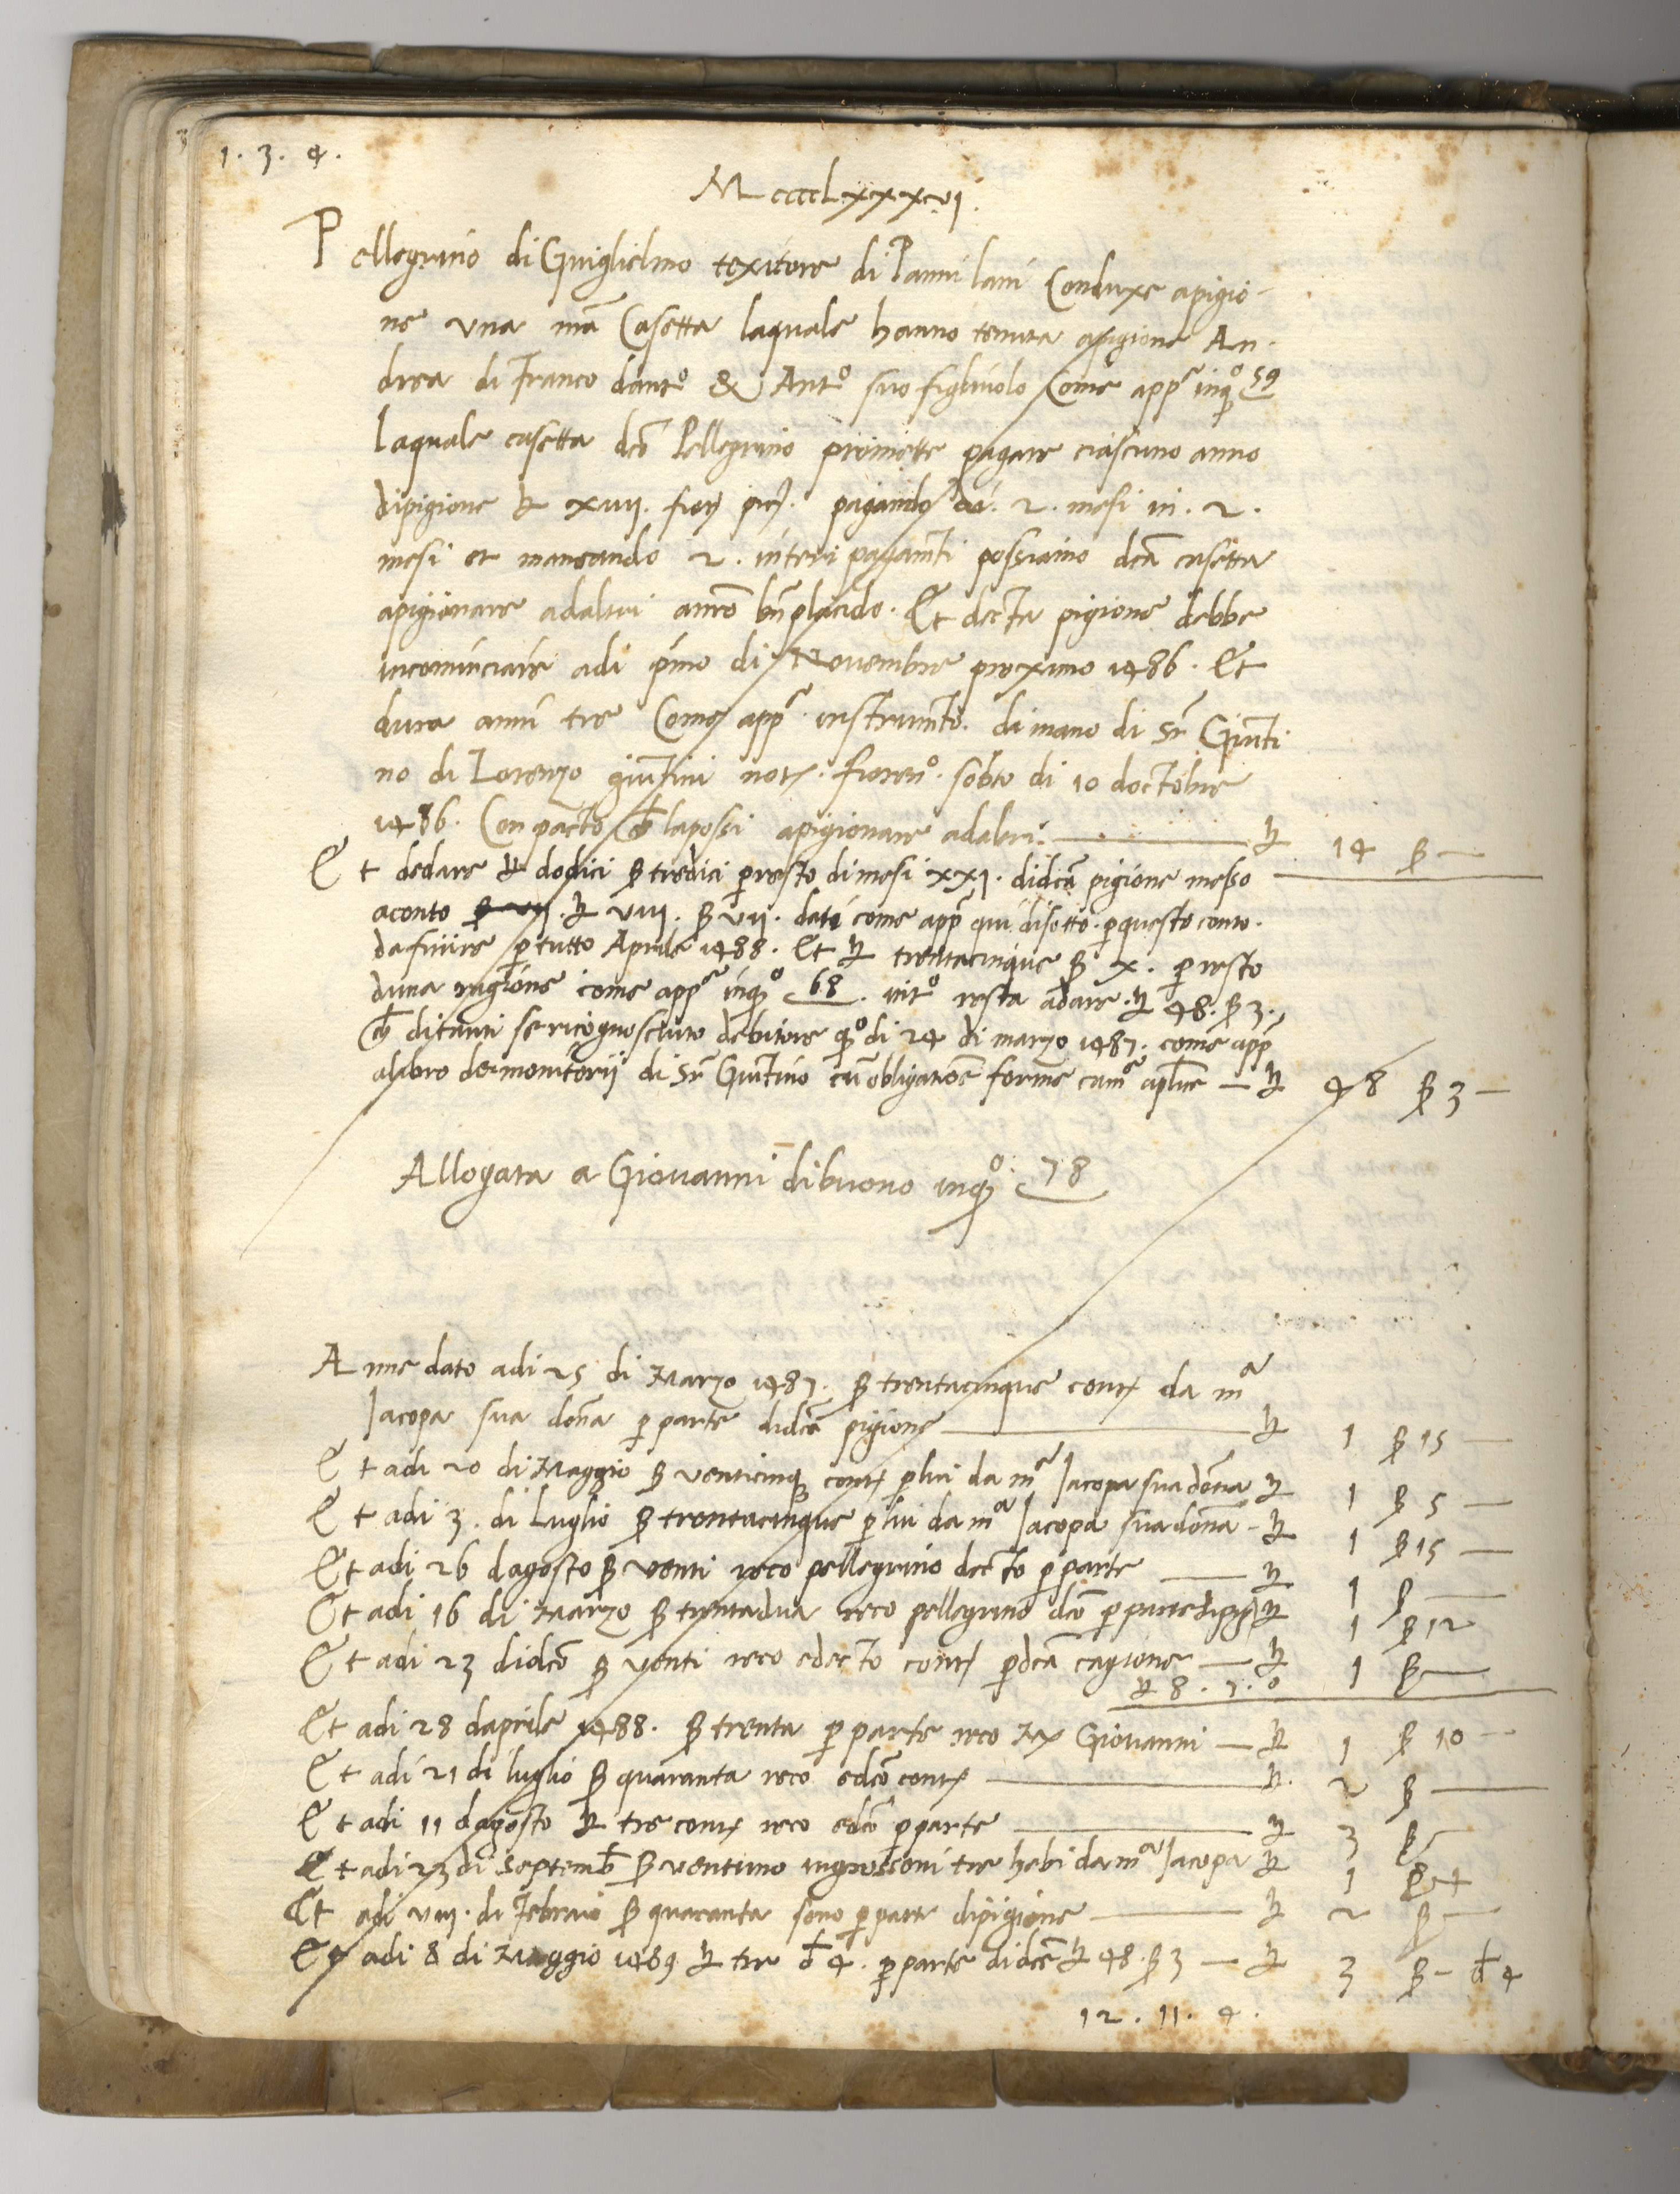 1. 3. 4.
MccccLxxxvj.
Pellegrino di Guiglielmo texitore di Panni lani Conduxe apigio-
ne una mia Casetta laquale hanno tenuta apigione An-
drea di Franco dantº & Antº suo figliuolo Come appª inqº 59
laquale casetta dcō Pellegrino promette pagare ciascuno anno
dipigione ℔ xiiij. pagando di. 2. mesi in. 2.
mesi et mancando 2. interi pagamti possiamo dcā casetta
apigionare adaltri anrō bn̄placido. Et decta pigione debbe
incominciare adi pmo di Novembre proximo 1486. Et
dura anni tre Come appª instrumto. di mano di Sr̄ Giunti
no di Lorenzo giuntini not. fiorenº. sobto di 10 doctobre
1486. Con pacto ch̄ lapossi apigionare adaltri. — ℔ 14 ß —
Et dedare ℔ dodici ß tredici presto dimesi xxj. didcā pigione messo
aconto ß vij. ℔ viij. ß vij. dati come app̄ qui disotto. pquesto conto.
dafinire p tutto Aprile 1488. Et ℔ trentacinque ß x. p resto
duna ragione come appª inqº 68. intº resta adare. ℔ 48. ß 3.,
ch̄ ditanti se ricognosciuto debitore qº di 24 di marzo 1487. come app̄
alibro dei monitorij di Sr̄ Giuntino cū obligatione forme camª aplice — ℔ 48 ß 3 —
Allogata a Giovanni dibuono inqº 78
Anne dato adi 25 di Marzo 1487. ß trentacinque contj da mª
Jacopa sua dona p parte didcā pigione — ℔ 1 ß 15 —
Et adi 20 di Maggio ß venticinqȝ contj plui da mª Jacopa sua dona ℔ 1 ß 5 —
Et adi 3. di Luglio ß trentacinque plui da mª Jacopa sua dona - ℔ 1 ß 15 —
Et adi 26 dagosto ß venti reco pellegrino decto pparte — ℔ 1 ß —
Et adi 16 di Marzo ß trentadua reco pellegrino dcō pparte ℔ 1 ß 12
Et adi 23 didcō ß venti reco edecto contj pdcā cagione — ℔ 1 ß —
℔ 8. 7. 0
Et adi 28 daprile 1488. ß trenta p parte reco Giovanni — ℔ 1 ß 10 —
Et adi 21 di luglio ß quaranta reco edcō contj — ℔. 2 ß —
Et adi 11 dagosto ℔ tre contj reco edcō pparte — ℔ 3 ß —
Et adi 23 di Septemb̄ ß ventuno ingrossoni tre hebi da mª Jacopa ℔ 1 ß
Et adi viij. di Febraio ß quaranta sono pparte dipigione — ℔ 2 ß —
Et adi 8 di Maggio 1489. ℔ tre d̄ 4. pparte didcē ℔ 48. ß 3 — ℔ 3 ß - d̄ 4
12. 11. 4.